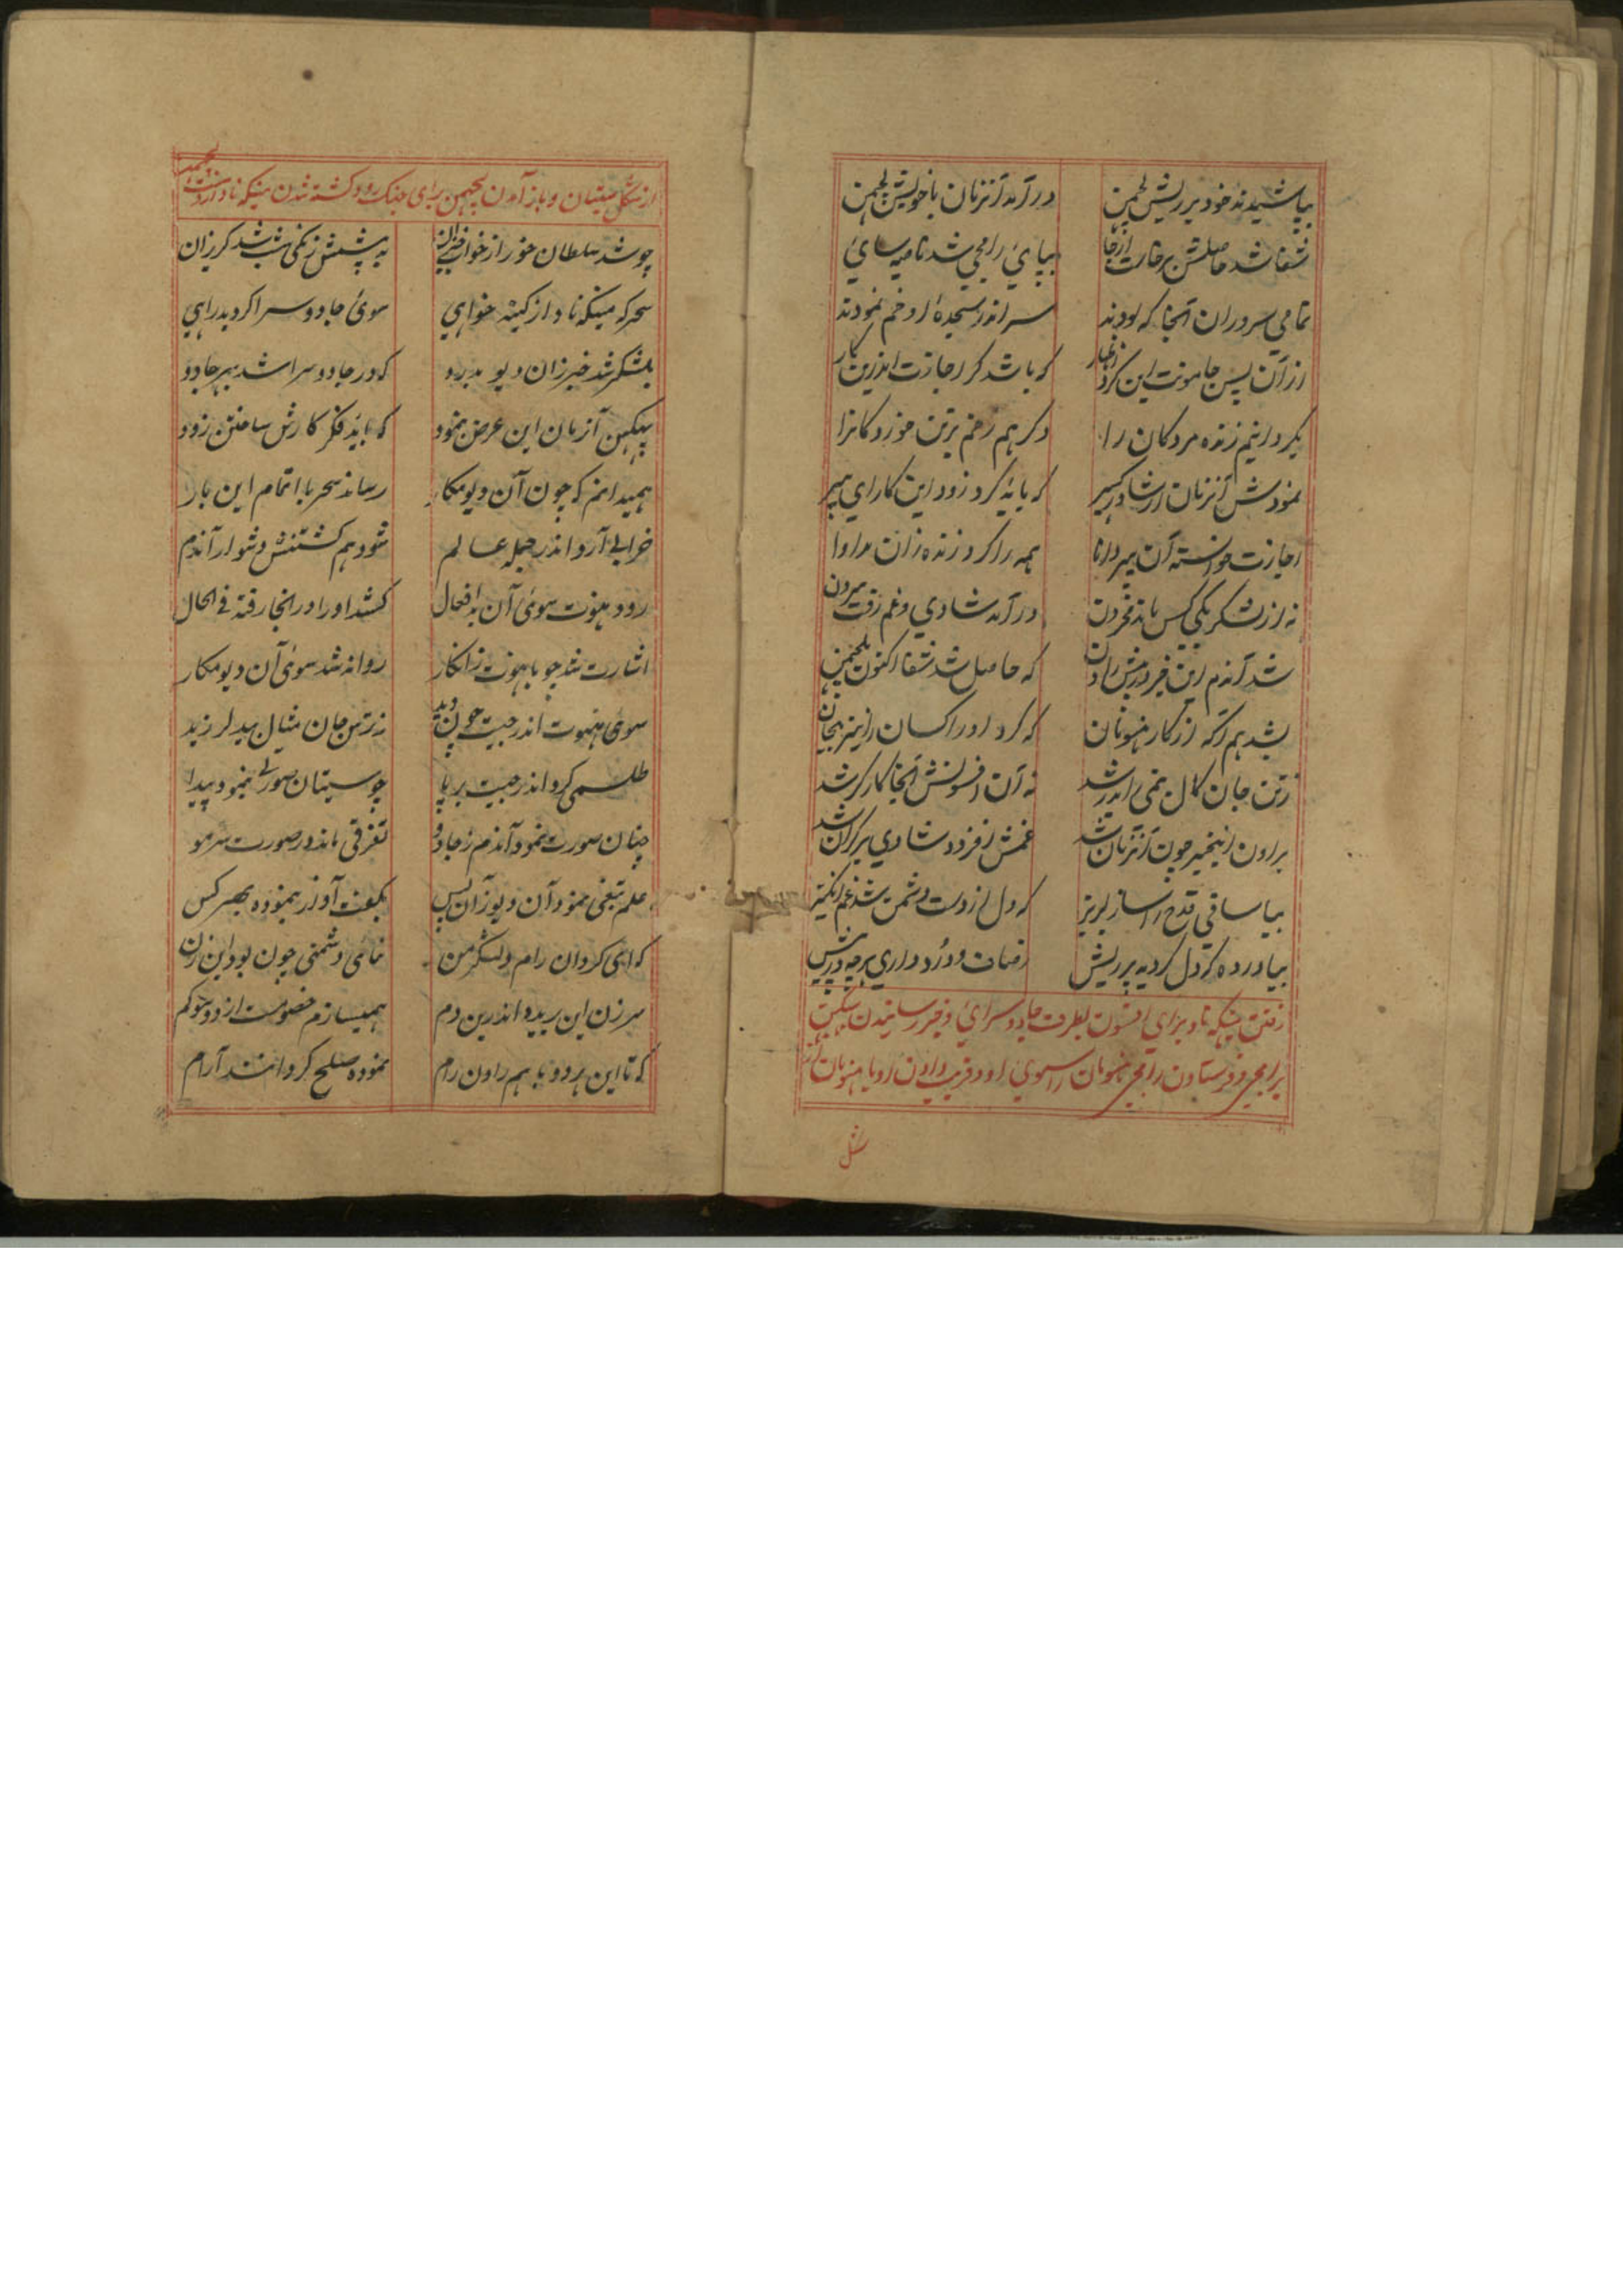 بپاشیدند خود بر ریش لچمن در آمد آنزمان با خویش لچمن
شفا شد حاصلش برخاست از جا بپای رامجی شد ناصیه سای
تمامی سروران آنجا که بودند سر اندر سجدهٔ او خم نمودند
از آن پس جامونت این کرد اظهار که باشد گر اجازت اندرین کار
بگردانیم زنده مردگان را دگر هم زخم برتن خوردگانرا
نمودش آنزمان ارشاد که باید کرد زود این کار ای
اجازت خواسته آن پیر دانا همه را کرد زنده زان مداوا
نه از لشکر یکی کس ماند محزون در آمد شادی و غم رفت بیرون
شد آندم این خبر در پیش راون که حاصل شد شفا اکنون بلچمن
بشد هم آگه از کار هنومان که کرد او راکسان را نیز بیجان
زتن جان کال نیمی اندر شد نه آن افسونش آنجا کارگر شد
براون اینخبر چون آنزمان شد غمش افزود شادی بر کران شد
بیا ساقی قدح را ساز لبریز که دل از دست دشمن شد غم انگیز
بیاور ده که دل گردید پر ریش زمان درد داری هرچه در پیش
رفتن میگهه ناد برای افسون بطرف جادو سرای و خبر رسانیدن ببیکن
برامجی و فرستادن رامجی هنومان را سوی او و فریب دادن او با هنومان
شکل
از شکل سیتان و باز آمدن لچمن برای جنگ او و کشته شدن میگهه ناد از دست لچمن
چو شد سلطان خور از خواب خیزان به پیشش زنگی شب شد گریزان
سحرگه میگهه ناد از کینه خواهی سوی جادو سرا کرد بدراهی
بلشکر شد خبر زان دیو بدرو که در جادو سرا شد بهر جادو
ببیکن آنزمان این عرض بنمود که باید فکر کارش ساختن زود
همیدانم که چون آن دیو مکار رساند سحر با اتمام این بار
خرابی آرد اندر جمله عالم شود هم کشتنش دشوار آندم
رود هنوت سوی آن بد افعال کشد او را در آنجا رفته فی الحال
اشارت شد چو با هنوت زانکار روانه شد سوی آن دیو مکار
سوی هنوت اندر جیت چون دید ز ترس جان مثال بید لرزید
طلسمی کرد اندر جیت بر پا چو سیتان صورتی بنمود پیدا
چنان صورت نمود آندم ز جادو تفرقی ماند در صورت سر مو
علم تیغی نمود آن دیو زان پس بگفت آواز بنموده بهر کس
که ای گردان رام و لشکر من نمائی دشمنی چون بود این زن
سر زن این بریده اندرین دم همیسازم خصومت از دو سو کم
که تا این هر دو با هم راون رام نموده صلح کردانند آرام